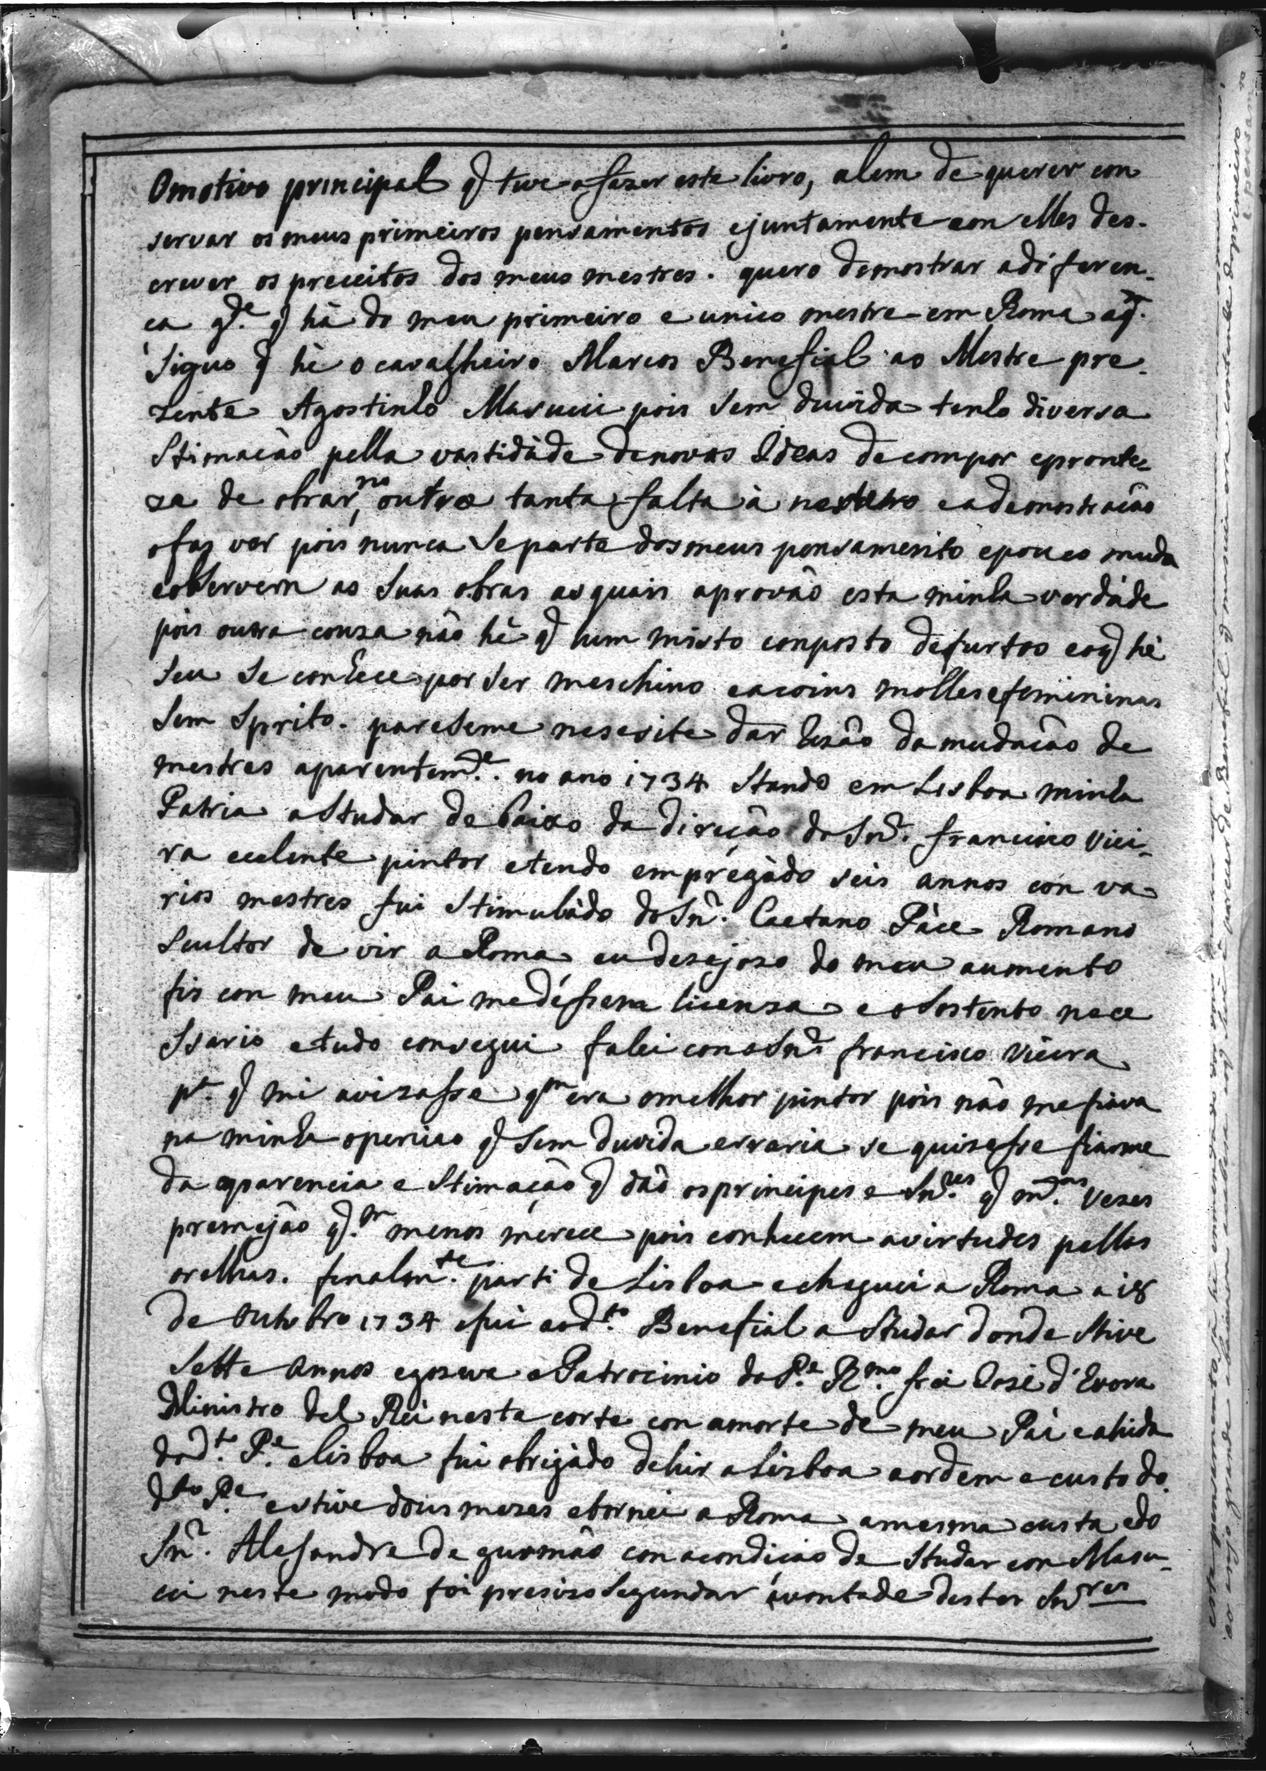 Omotivo principal q̃ tive afazer este livro, alem de querer con
servar os meus primeiros pensamentos ejuntamente con elles des-
crever os preceitos dos meus mestres. quero demostrar adiferen-
ca gde. q̃ hà do meu primeiro e unico mestre em Roma aq̃.
Siguo q̃ hè o cavalheiro Marcos Benefial ao Mestre pre-
zente Agostinho Masucii pois sem duvida tenho diversa
Stimacão pella vastidàde de novas Ideas de compor epronte-
za de obrar, no outro tanta falta à neste eademostracão
ofaz ver pois nunca Separta dos meus pensamento epouco muda
eobservem as Suas obras as quais aprovão esta minha verdàde
pois outra couza não hè q̃ hum misto conposto de furtos eoq̃ hè
seu se conhece por ser meschino eacoins molles efemininas
Sem Sprito. pareseme nesesite dar Rezão da mudacão de
mestres aparentemte. no ano 1734 Stando em Lisboa minha
Patria aStudar de baixo da direcão do Snr. francisco Viei-
ra ecelente pintor etendo emprégàdo seis annos con va
rios mestres fui Stimulàdo do Snr. Caetano Pàce Romano
Scultor de vir a Roma eu desejozo do meu aumento
fis con meu Pai me désem licensa e o Sostento nece
Ssario etudo consegui falei con o Snr. francisco Vieira
pa. q̃ mi avizasse qm era omelhor pintor pois não me fiava
na minha openiao q̃ Sem duvida erraria se quizesse fiarme
da aparencia e Stimacão q̃ dão os principes e Snres. q̃ mtas vezes
premejão qm. menos merece pois conhecem avirtudes pellas
orelhas. finalmte. parti de Lisboa echeguei a Roma a 18
de outubro 1734 efui aodto. Benefial a Studar donde Stive
Sette Annos egozava oPatrocinio do Pe. Rmo. frei José d'Evora
Ministro del Rei nesta corte con amorte de meu Pài eahida
do dto. Pe. a Lisboa fui obrigàdo dehir aLisboa aordem e custo do
dto Pe. estive dois mezes etornei a Roma amesma custa edo
Snr. Alesandre de gusmão con acondicao de Studar con Masu-
ci neste modo foi precizo Segundar avontade destes Snres